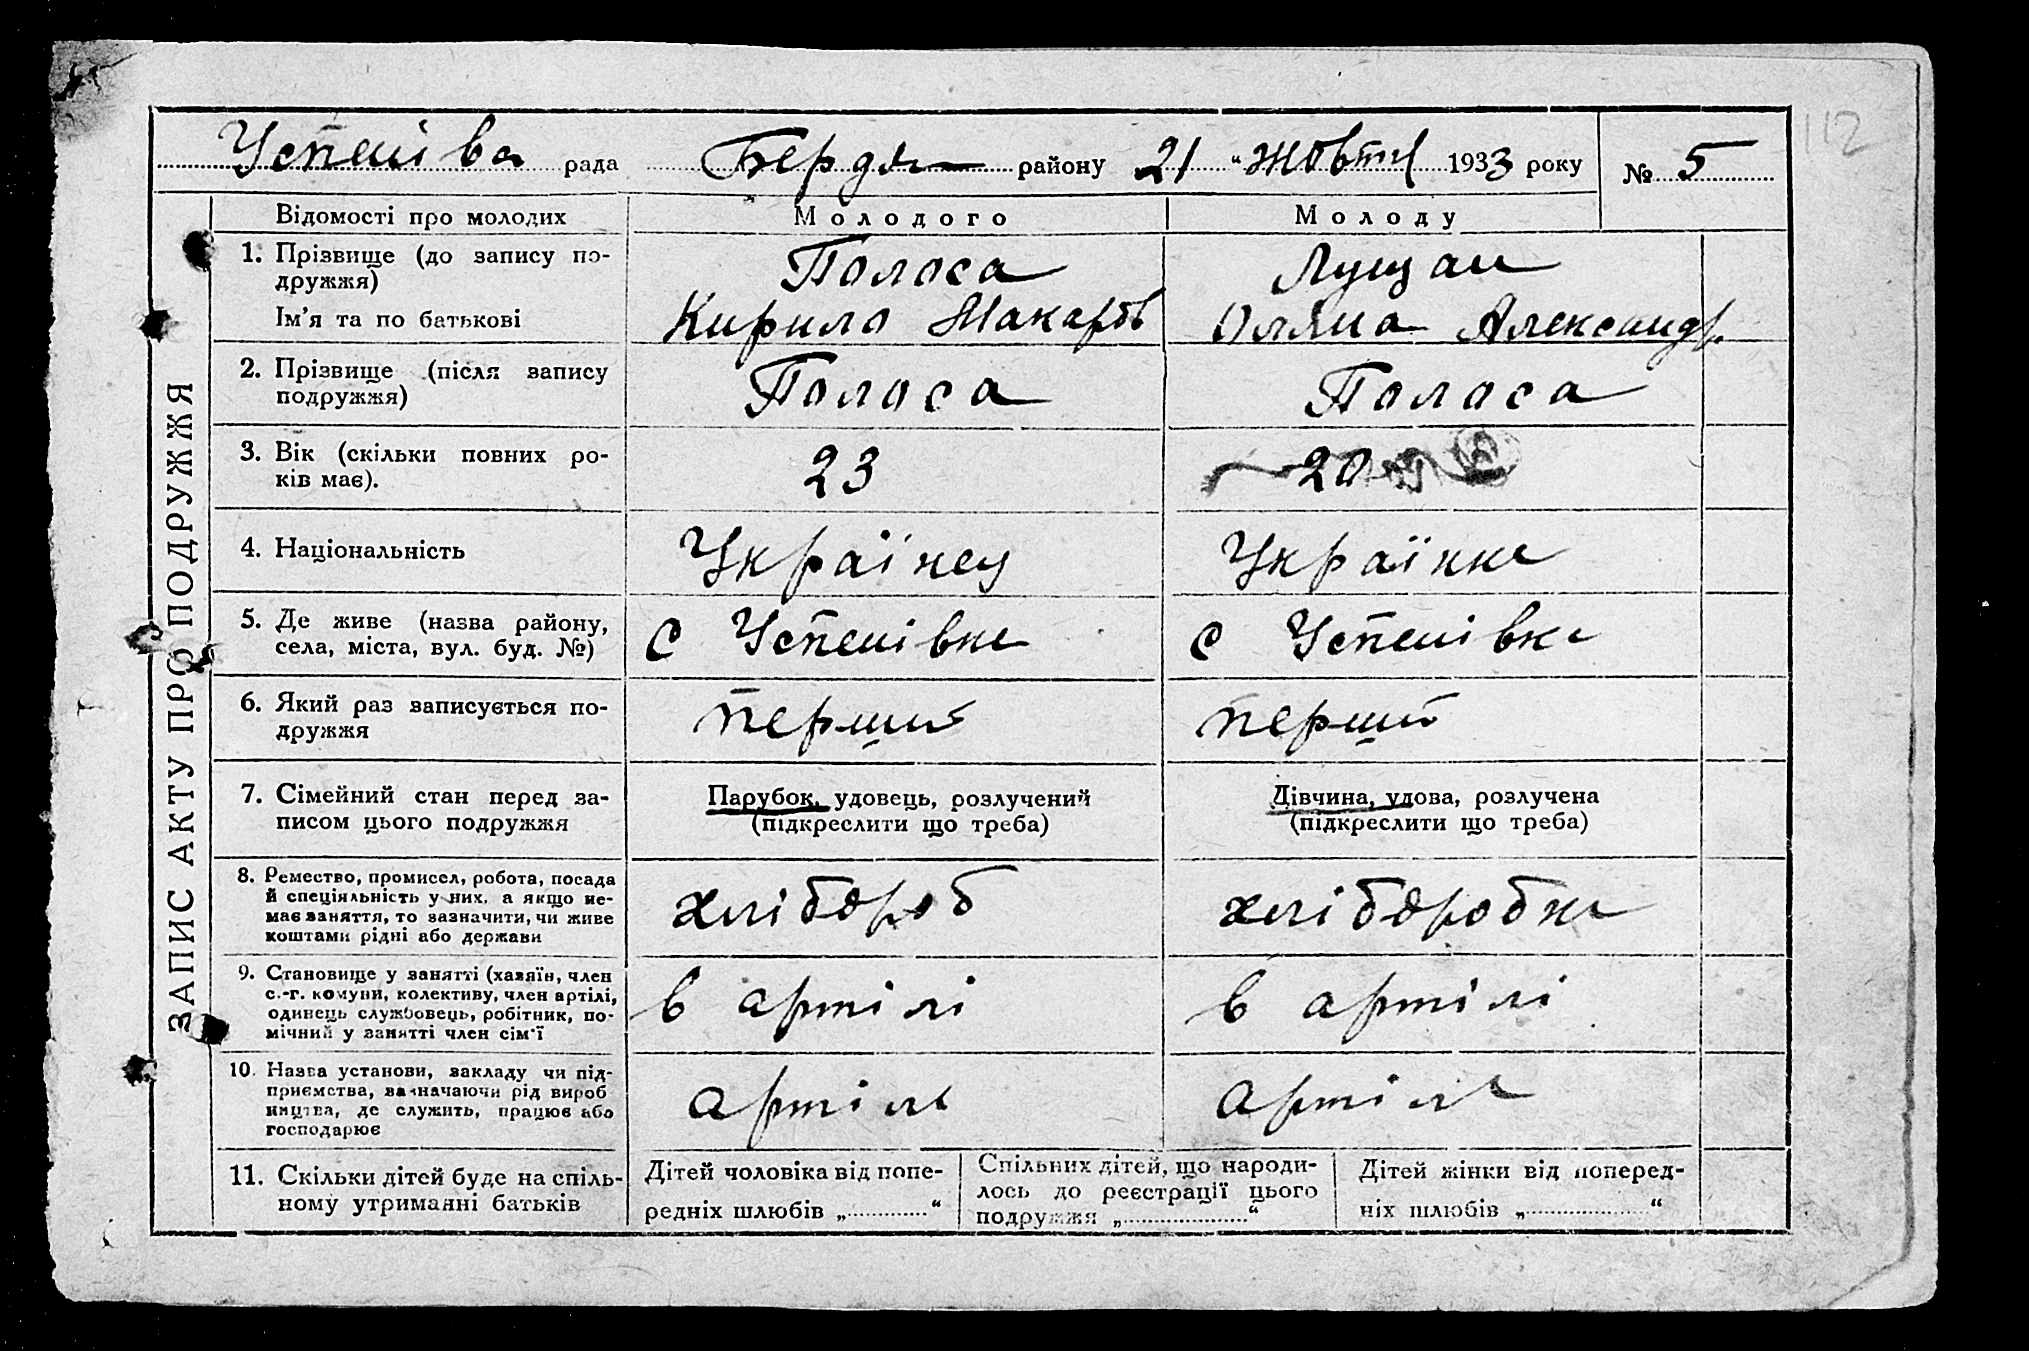 112
Успенівa рада Бердян району 21 „ Жовтн 1933 року № 5
Відомості про молодих Молодого Молоду
1. Прізвище (до запису по-
дружжя) Полоса Лущан
Ім'я та по батькові Кирило Макаров Оляна Александр.
2. Прізвище (після запису
подружжя) Полоса Полоса
3. Вік (скільки повних ро-
ків має). 23 20
4. Національність Українец Українка
5. Де живе (назва району,
села, міста, вул. буд. №) с Успенівка с Успенівка
6. Який раз записується по-
дружжя перший перший
7. Сімейний стан перед за-
писом цього подружжя
Парубок, удовець, розлучений
(підкреслити що треба)
Дівчина, удова, розлучена
(підкреслити що треба)
8. Ремество, промисел, робота, посада
й спеціяльність у них, а якщо не-
має заняття, то зазначити, чи живе
коштами рідні або держави
хлібороб хліборобка
9. Становище у занятті (хазяїн, член
с.-г. комуни, колективу, член артілі,
одинець службовець, робітник, по-
мічний у занятті член сім'ї
в артілі в артілі
10. Назва установи, закладу чи під-
приємства, зазначаючи рід вироб
ництва, де служить, працює або
господарює
артіль артіль
11. Скільки дітей буде на спіль-
ному утриманні батьків
Дітей чоловіка від попе-
редніх шлюбів „ “
Спільних дітей, що народи-
лось до реєстрації цього
подружжя „ “
Дітей жінки від поперед-
ніх шлюбів „ “
ЗАПИС АКТУ ПРО ПОДРУЖЖЯ